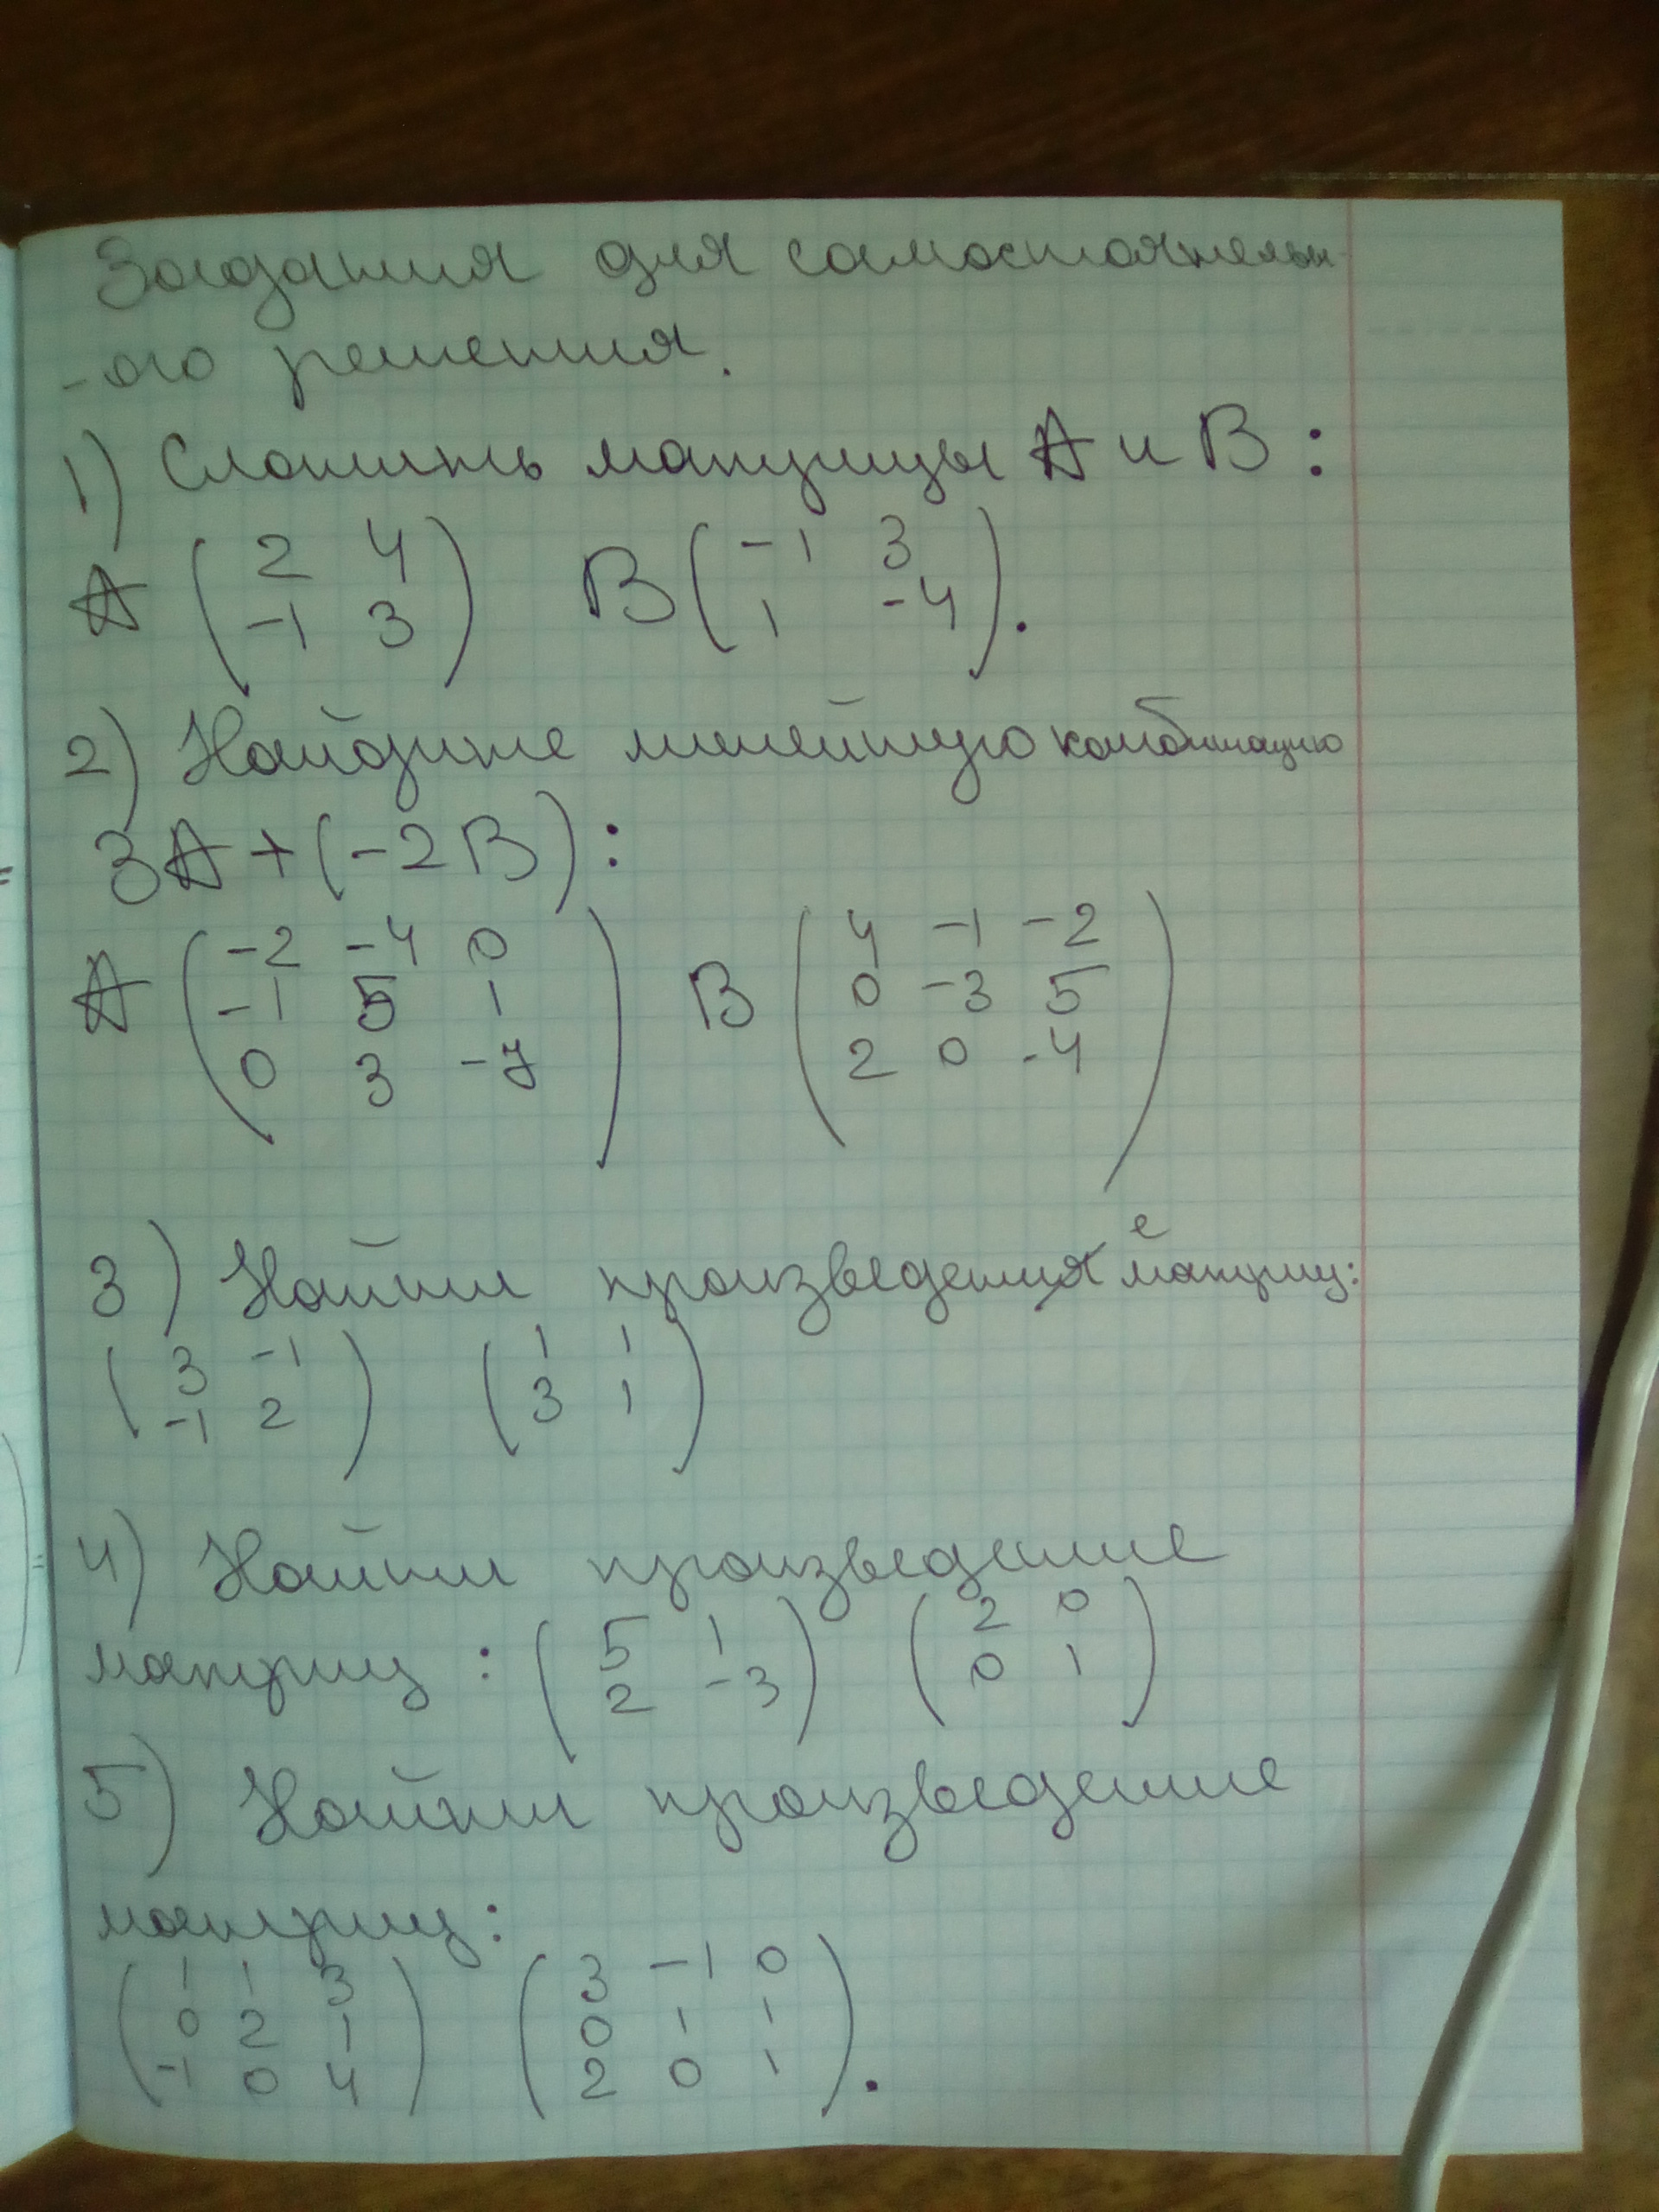 Задания для самостоятельн
-ого решения.
1) Сложить матрицы A и B:
A ( 2 4 ) B ( -1 3 )
( -1 3 ) ( 1 -4 ).
2) Найдите линейную комбинацию
3A + (-2B):
A ( -2 -4 0 ) B ( 4 -1 -2 )
( -1 5 1 ) ( 0 -3 5 )
( 0 3 -7 ) ( 2 0 -4 )
3) Найти произведение матриц:
( 3 -1 ) ( 1 1 )
( -1 2 ) ( 3 1 )
4) Найти произведение
матриц: ( 5 1 ) ( 2 0 )
( 2 -3 ) ( 0 1 )
5) Найти произведение
матриц:
( 1 1 3 ) ( 3 -1 0 )
( 0 2 1 ) ( 0 1 1 )
( -1 0 4 ) ( 2 0 1 ).